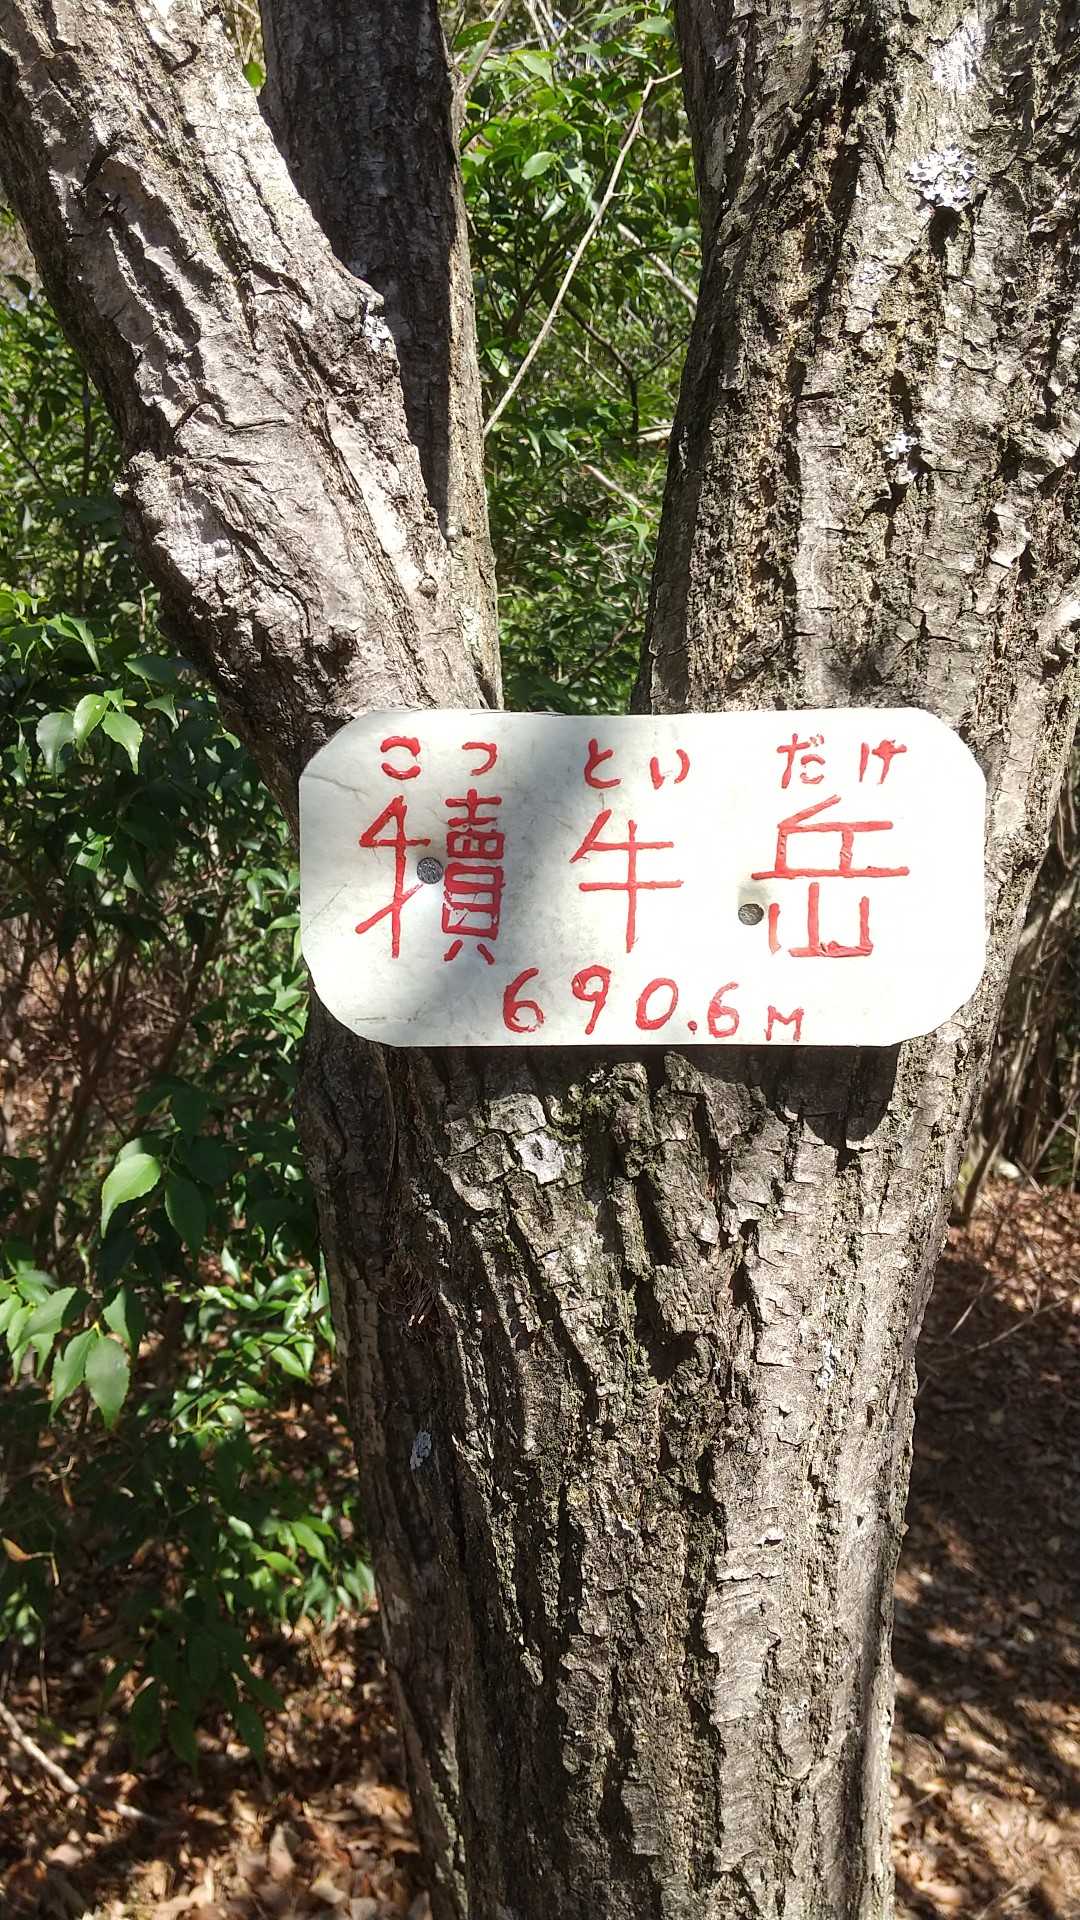 こっといだけ
犢牛岳
690.6M